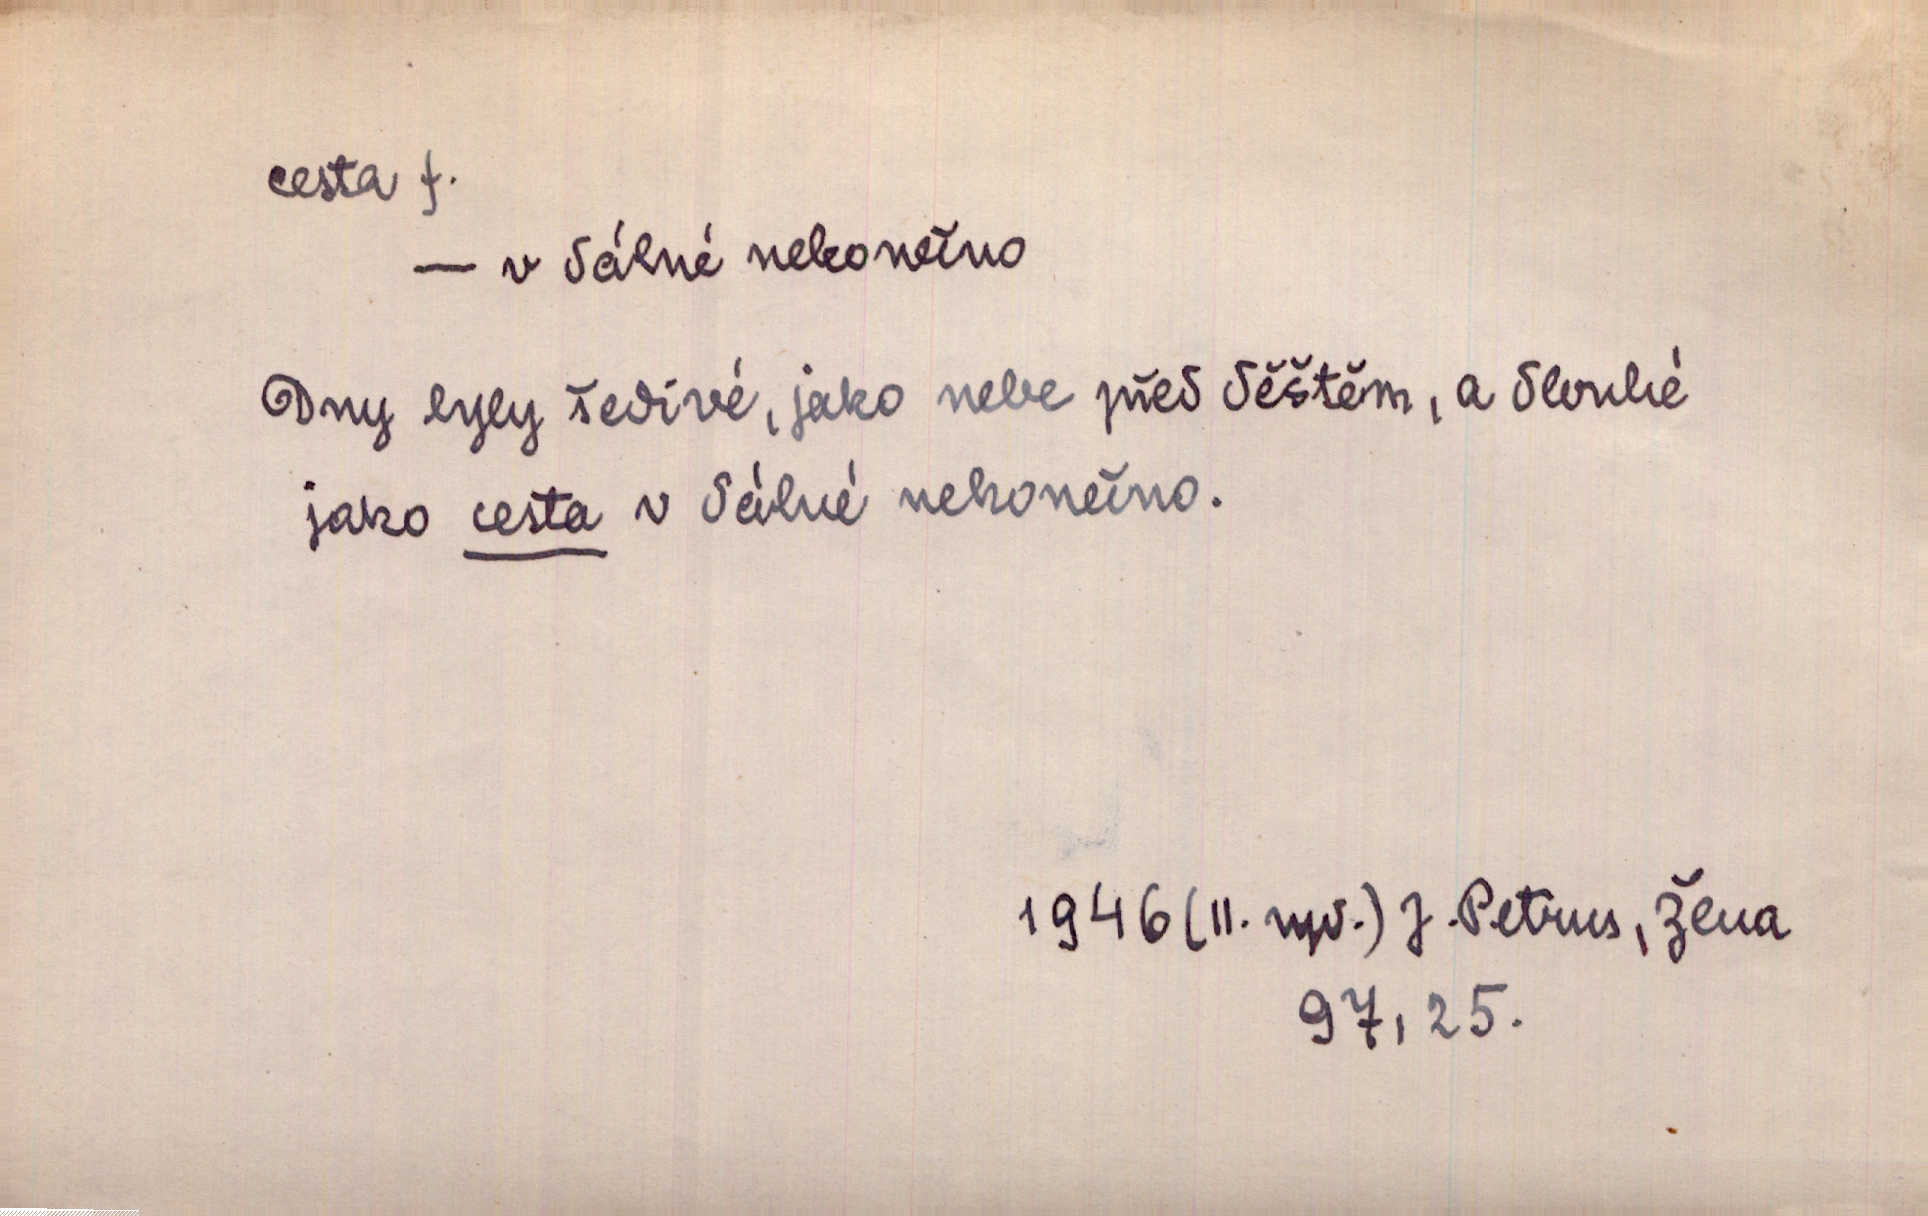 cesta f.
— v dálné nekonečno
Dny byly šedivé, jako nebe před děštěm, a dlouhé
jako cesta v dálné nekonečno.
1946 (II. vyd.) J. Petrus, Žena
97, 25.